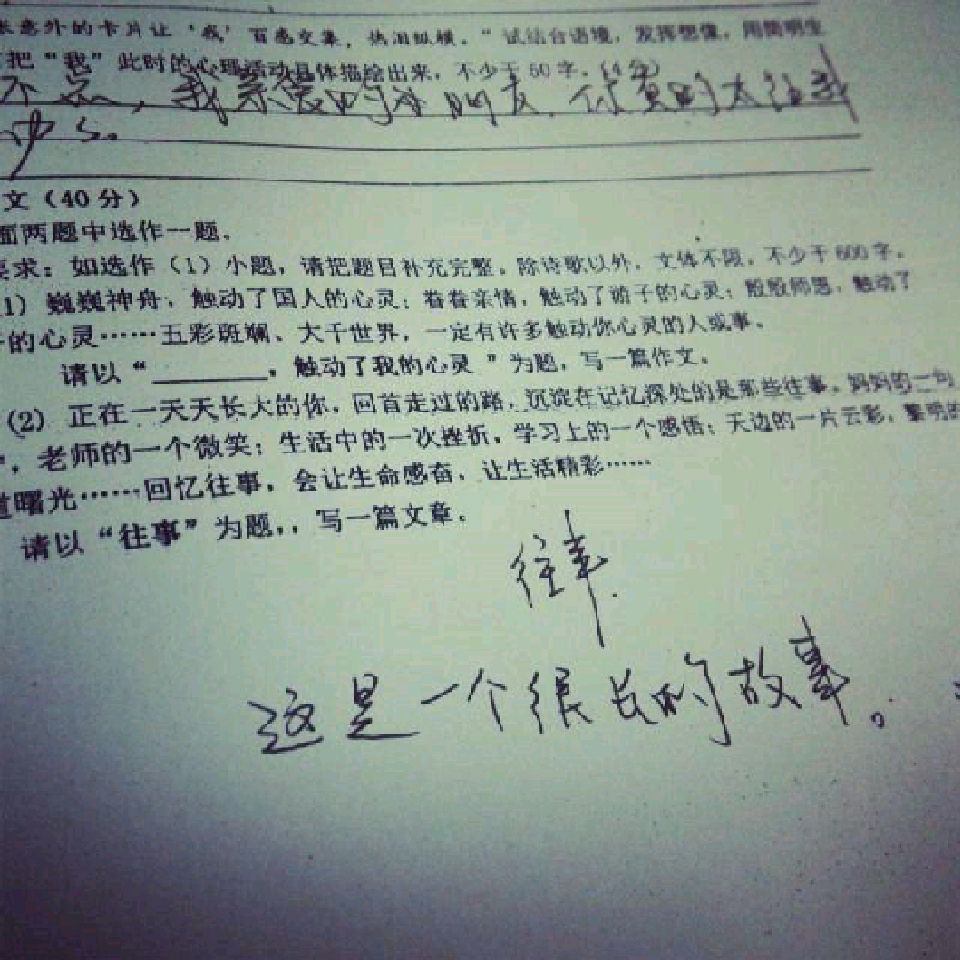 意外的卡片让‘我’百感交集,热泪纵横。”试结合语境,发挥想像,用简明生
把“我”此时的心理活动具体描绘出来,不少于50字。(4分)
不忘,我亲爱的小朋友,你真的太
文(40分)
面两题中选作一题。
要求:如选作(1)小题,请把题目补充完整。除诗歌以外,文体不限,不少于600字。
1)巍巍神舟,触动了国人的心灵;眷眷亲情,触动了游子的心灵;殷殷师恩,触动了
的心灵……五彩斑斓、大千世界,一定有许多触动你心灵的人或事。
请以“________,触动了我的心灵”为题,写一篇作文。
(2)正在一天天长大的你,回首走过的路,沉淀在记忆深处的是那些往事。妈妈的一句
,老师的一个微笑;生活中的一次挫折,学习上的一个感悟;天边的一片云彩,黎明的
道曙光……回忆往事,会让生命感奋,让生活精彩……
请以“往事”为题,,写一篇文章。
往事.
这是一个很长的故事。